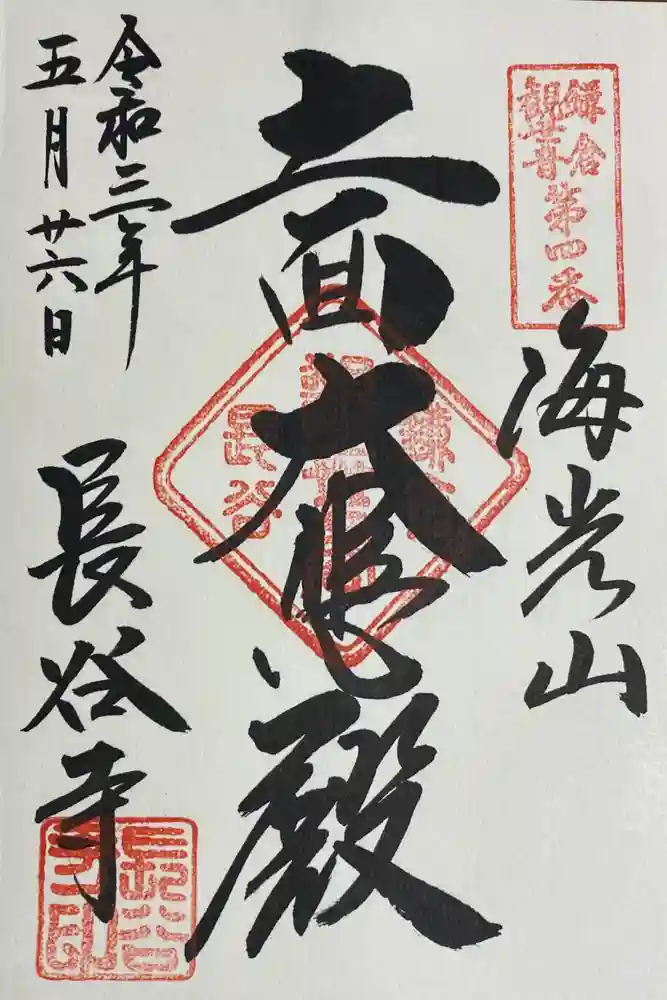 鎌倉
観世音
第四番
海光山
十一面大悲殿
長谷
令和三年
五月廿六日
長谷寺
長谷
寺印